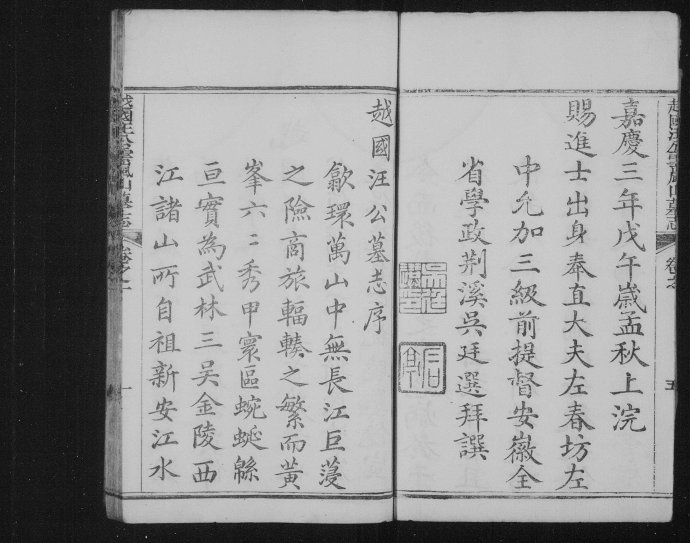 嘉慶三年戊午歲孟秋上浣
賜進士出身奉直大夫左春坊左
中允加三級前提督安徽全
省學政荆溪吳廷選拜譔
五
越國汪公墓志序
歙環萬山中無長江巨蔓
之險商旅輻輳之繁而黃
峯六六秀甲寰區蜿蜒緜
亘實為武林三吳金陵西
江諸山所自祖新安江水
越國汪公雲嵐山墓志 卷之一
一